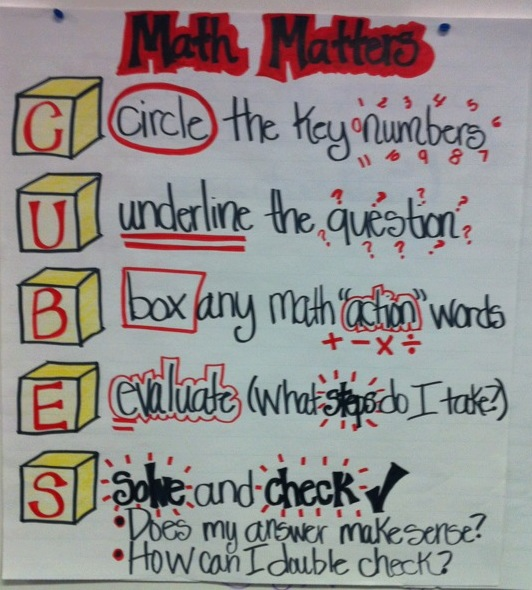 Math Matters
C circle the key numbers
1 2 3 4 5 6 7 8 9 10 11 0
U underline the question
? ? ? ? ? ? ? ?
B box any math "action" words
+ - x ÷
E evaluate (What steps do I take?)
S solve and check ✓
• Does my answer make sense?
• How can I double check?